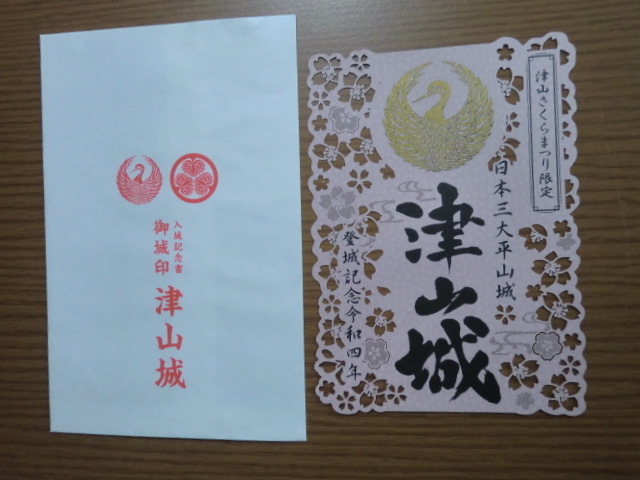 入城記念書
御城印
津山城
津山さくらまつり限定
日本三大平山城
津山城
登城記念令和四年